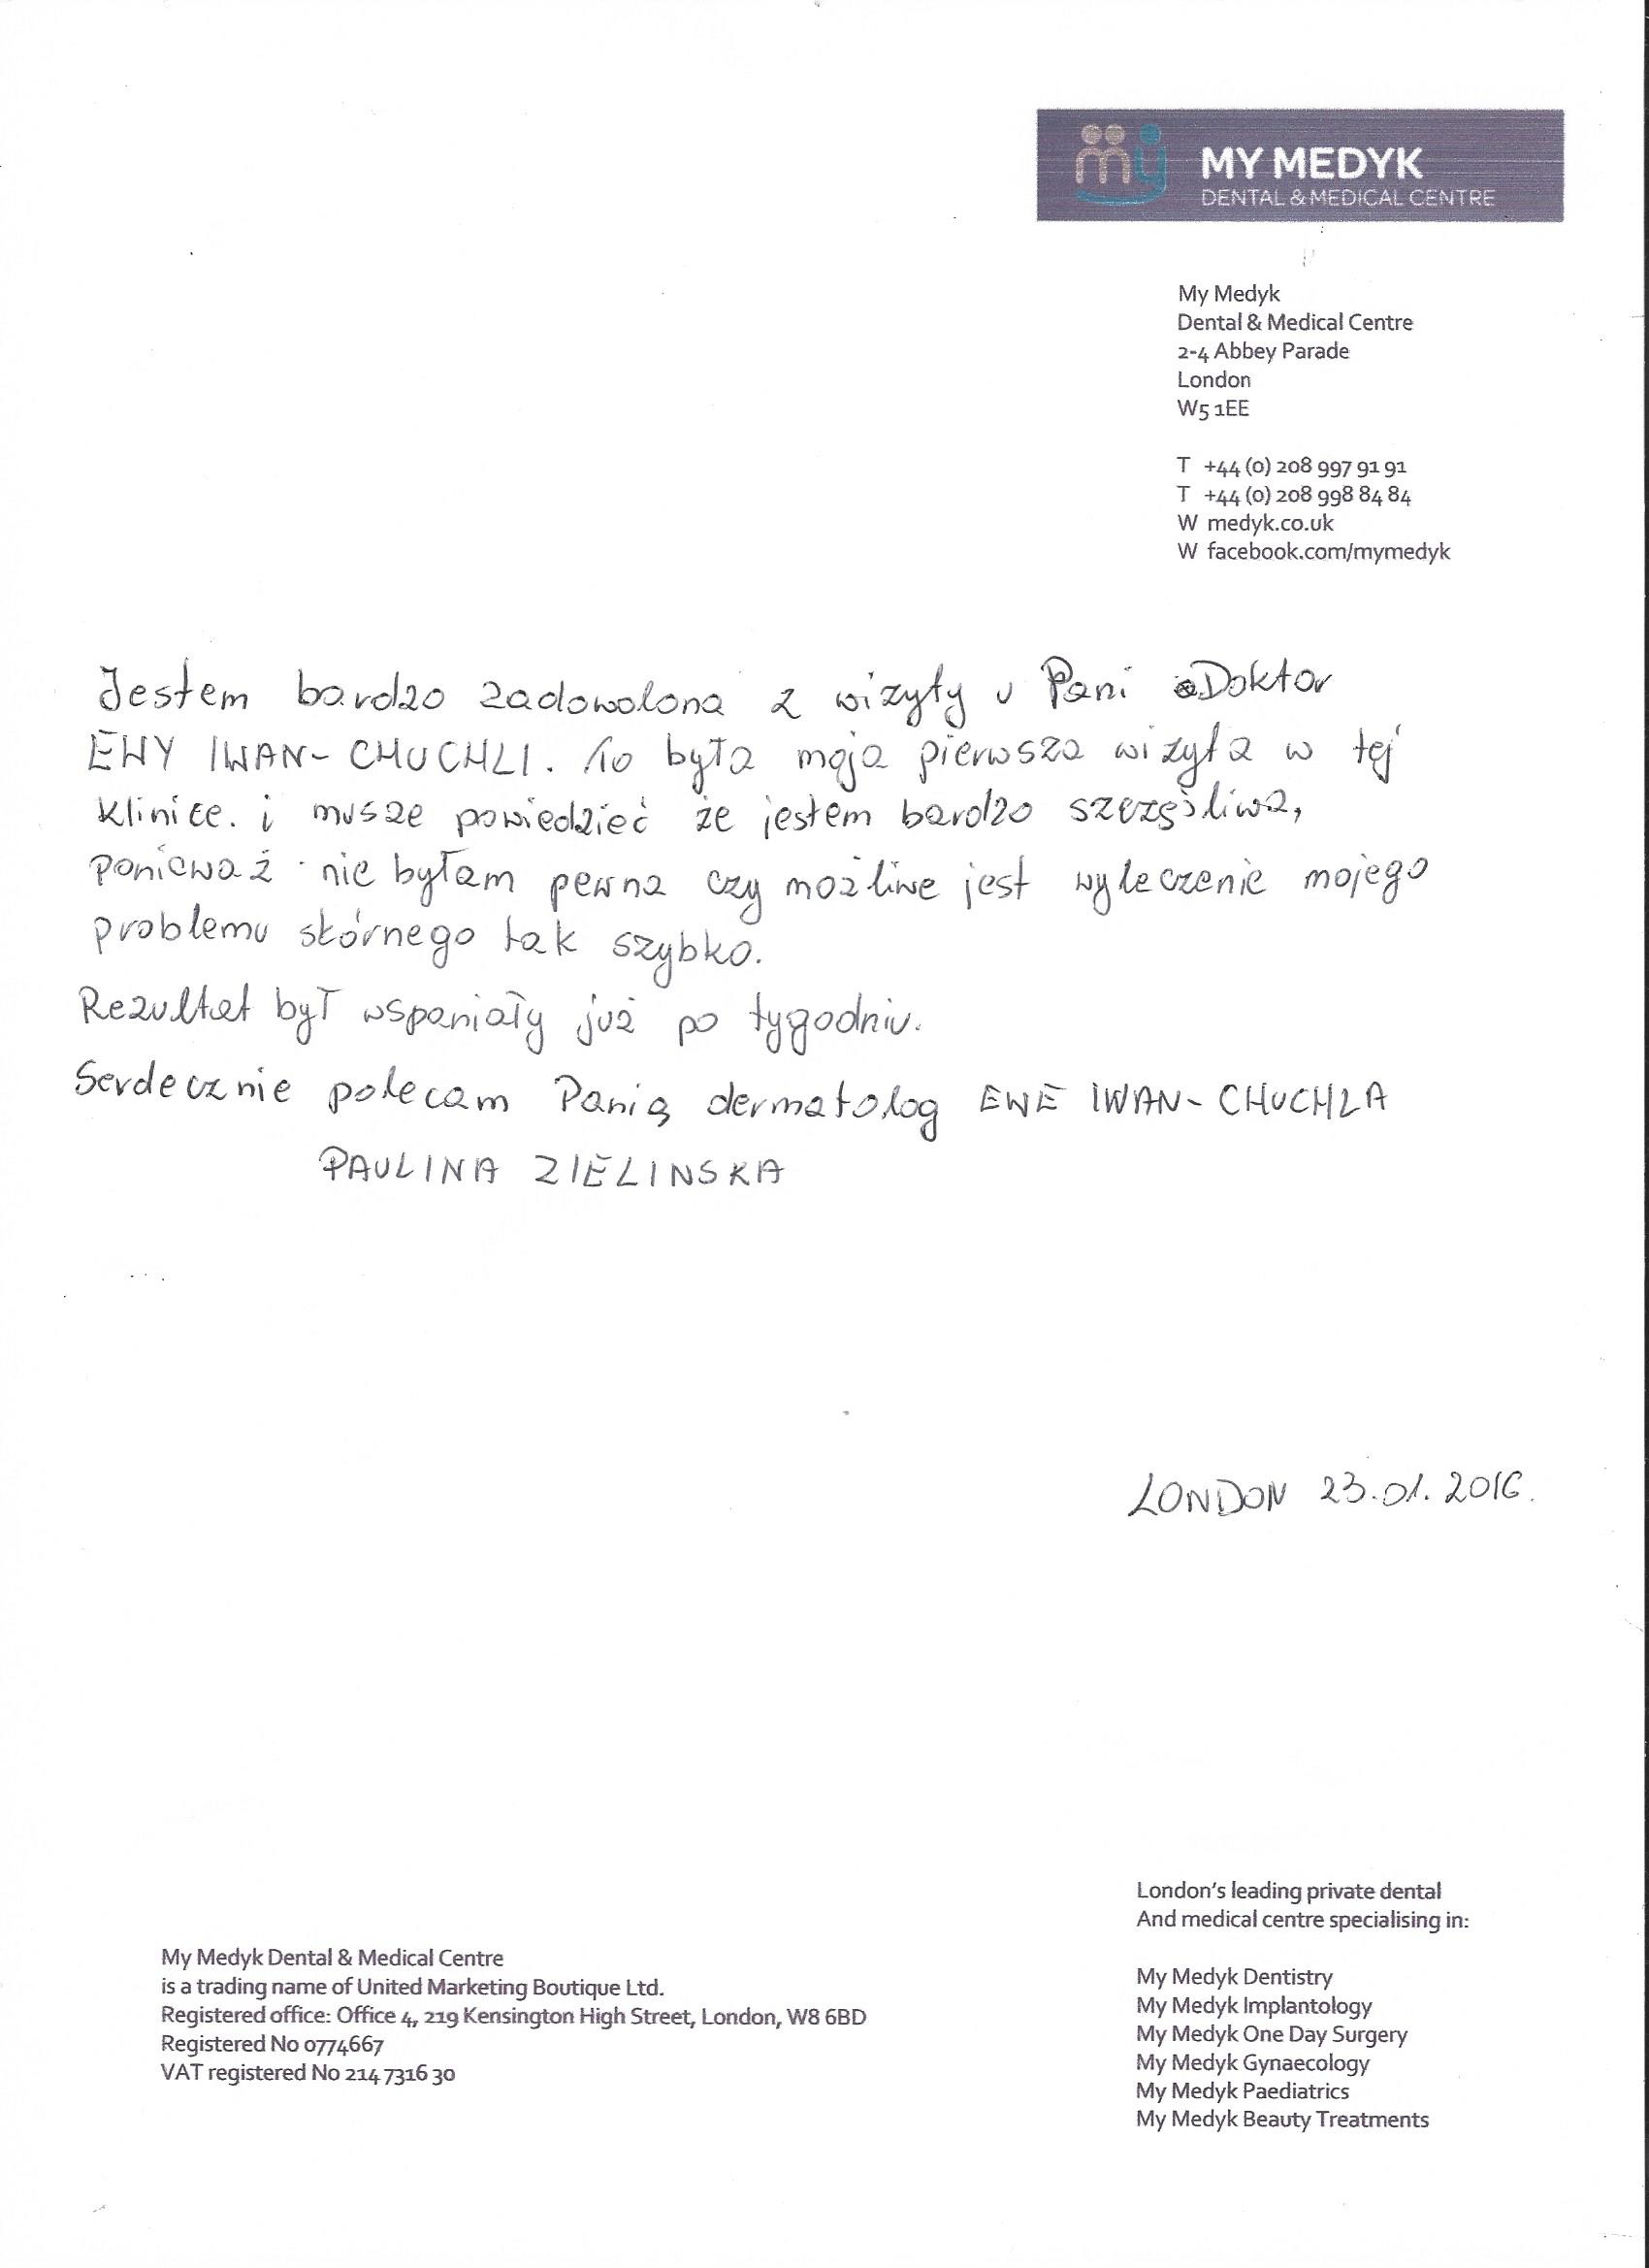 MY MEDYK
DENTAL & MEDICAL CENTRE
My Medyk
Dental & Medical Centre
2-4 Abbey Parade
London
W5 1EE
T +44 (0) 208 997 91 91
T +44 (0) 208 998 84 84
W medyk.co.uk
W facebook.com/mymedyk
Jestem bardzo zadowolona z wizyty u Pani Doktor
EWY IWAN-CHUCHLI. To była moja pierwsza wizyta w tej
klinice. i musze powiedzieć że jestem bardzo szczęśliwa,
ponieważ nie byłam pewna czy możliwe jest wyleczenie mojego
problemu skórnego tak szybko.
Rezultat był wspaniały już po tygodniu.
Serdecznie polecam Panią dermatolog EWE IWAN-CHUCHLA
PAULINA ZIELINSKA
LONDON 23.01.2016.
London's leading private dental
And medical centre specialising in:
My Medyk Dentistry
My Medyk Implantology
My Medyk One Day Surgery
My Medyk Gynaecology
My Medyk Paediatrics
My Medyk Beauty Treatments
My Medyk Dental & Medical Centre
is a trading name of United Marketing Boutique Ltd.
Registered office: Office 4, 219 Kensington High Street, London, W8 6BD
Registered No 0774667
VAT registered No 214 7316 30